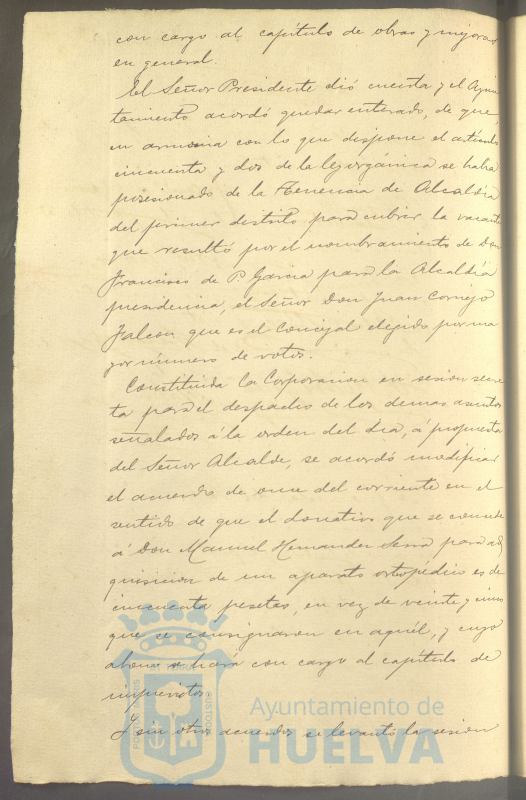 con cargo al capítulo de obras y mejoras
en general.
El Señor Presidente dió cuenta y el Ayun
tamiento acordó quedar enterado, de que,
en armonia con lo que dispone el artículo
cincuenta y dos de la ley organica se habia
posesionado de la Tenencia de Alcaldía
del primer distrito para cubrir la vacante
que resultó por el nombramiento de Don
Francisco de P. García para la Alcaldía
presidencia, el Señor Don Juan Cornejo
Falcon que es el Concejal elegido por ma
yor número de votos.
Constituida la Corporacion en sesion secre
ta para el despacho de los demas asuntos
señalados á la orden del dia, á propuesta
del Señor Alcalde, se acordó modificar
el acuerdo de once del corriente en el
sentido de que el donativo que se concede
á Don Manuel Hernandez Serra para ad
quisicion de un aparato ortopédico es de
cincuenta pesetas, en vez de veinte y cinco
que se consignaron en aquél, y cuyo
abono se hará con cargo al capítulo de
imprevistos.
Y sin otros acuerdos se levanto la sesion
Ayuntamiento de
HUELVA